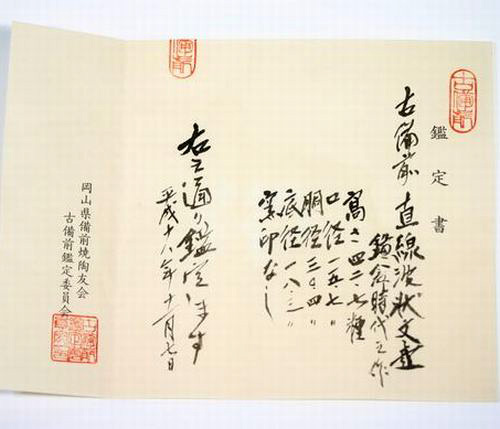 鑑定書
古備前
古備前 直線波状文壺
鎌倉時代之作
高さ四二.七糎
口径一五.七〃
胴径三〇.四〃
底径一八.三〃
窯印なし
右之通り鑑定します
平成十八年十一月七日
岡山県備前焼陶友会
古備前鑑定委員会